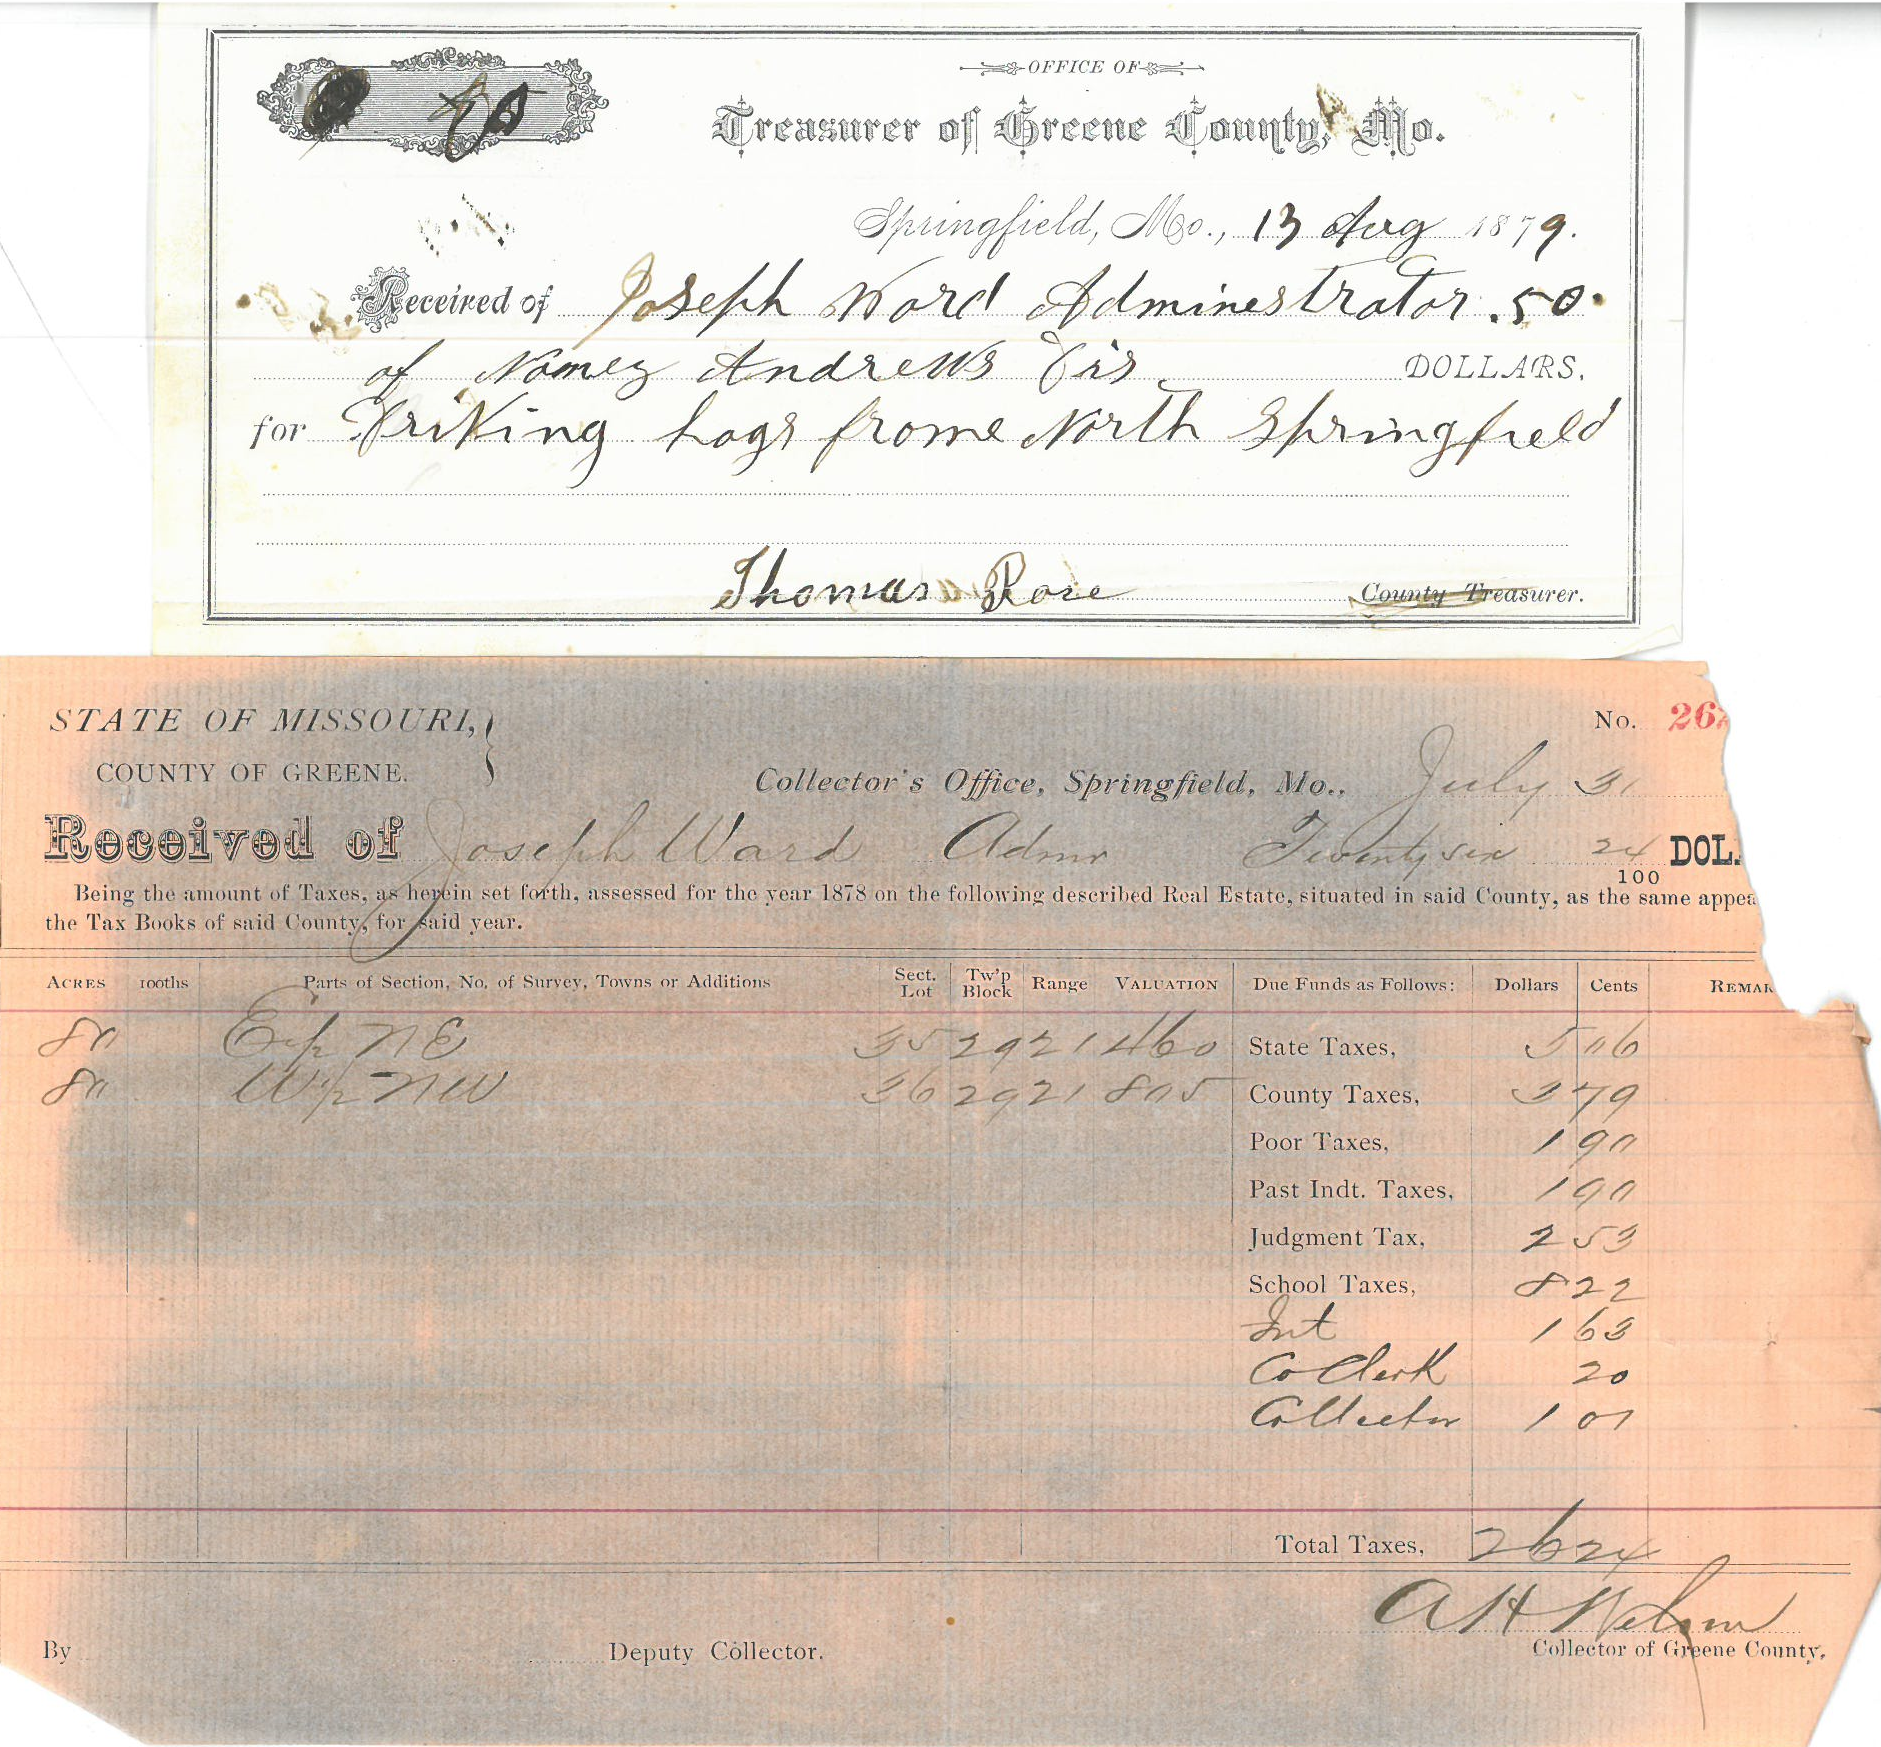 OFFICE OF
Treasurer of Greene County, Mo.
Springfield, Mo., 13 Aug 1879.
Received of Joseph Ward Adminestrator .50.
of Andrews DOLLARS.
for hogs frome North Springfield
Thomas County Treasurer.
STATE OF MISSOURI,
COUNTY OF GREENE.
No. 26
Collector's Office, Springfield, Mo., July 31
Received of Joseph Ward Admr Twenty six 24/100 DOL
Being the amount of Taxes, as herein set forth, assessed for the year 1878 on the following described Real Estate, situated in said County, as the same appea
the Tax Books of said County, for said year.
ACRES 100ths Parts of Section, No. of Survey, Towns or Additions Sect. Lot Tw'p Block Range VALUATION Due Funds as Follows: Dollars Cents REMAR
80 E½ NE 35 29 21 460 State Taxes, 5 06
80 W½ NW 36 29 21 805 County Taxes, 3 79
Poor Taxes, 1 90
Past Indt. Taxes, 1 90
Judgment Tax, 2 53
School Taxes, 8 22
Int 1 63
Co Clerk 20
Collector 1 01
Total Taxes, 26 24
A H
By Deputy Collector. Collector of Greene County.